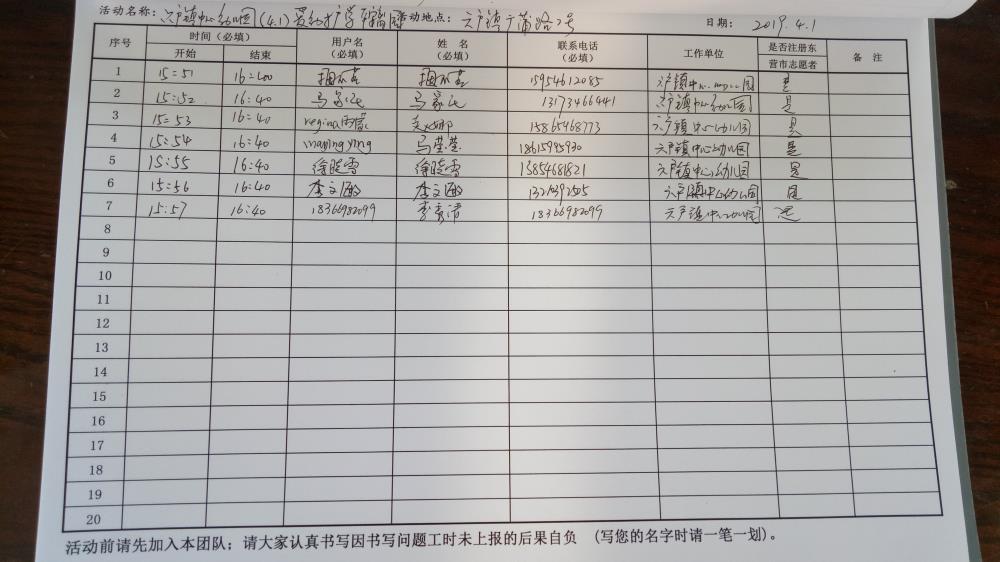 活动名称：六户镇中心幼儿园(4.1) 活动地点：六户镇广蒲路2号 日期：2019.4.1
序号 时间（必填） 用户名（必填） 姓 名（必填） 联系电话（必填） 工作单位 是否注册东营市志愿者 备 注
开始 结束
1 15:51 16:40 15954612085 六户镇中心幼儿园 是
2 15:52 16:40 13173466441 六户镇中心幼儿园 是
3 15:53 16:40 regina 15865468773 六户镇中心幼儿园 是
4 15:54 16:40 maying ying 马莹莹 18615995930 六户镇中心幼儿园 是
5 15:55 16:40 徐晓雪 徐晓雪 13854681821 六户镇中心幼儿园 是
6 15:56 16:40 李文 李文 六户镇中心幼儿园 是
7 15:57 16:40 18366982099 李 18366982099 六户镇中心幼儿园 是
8
9
10
11
12
13
14
15
16
17
18
19
20
活动前请先加入本团队；请大家认真书写因书写问题工时未上报的后果自负 (写您的名字时请一笔一划)。